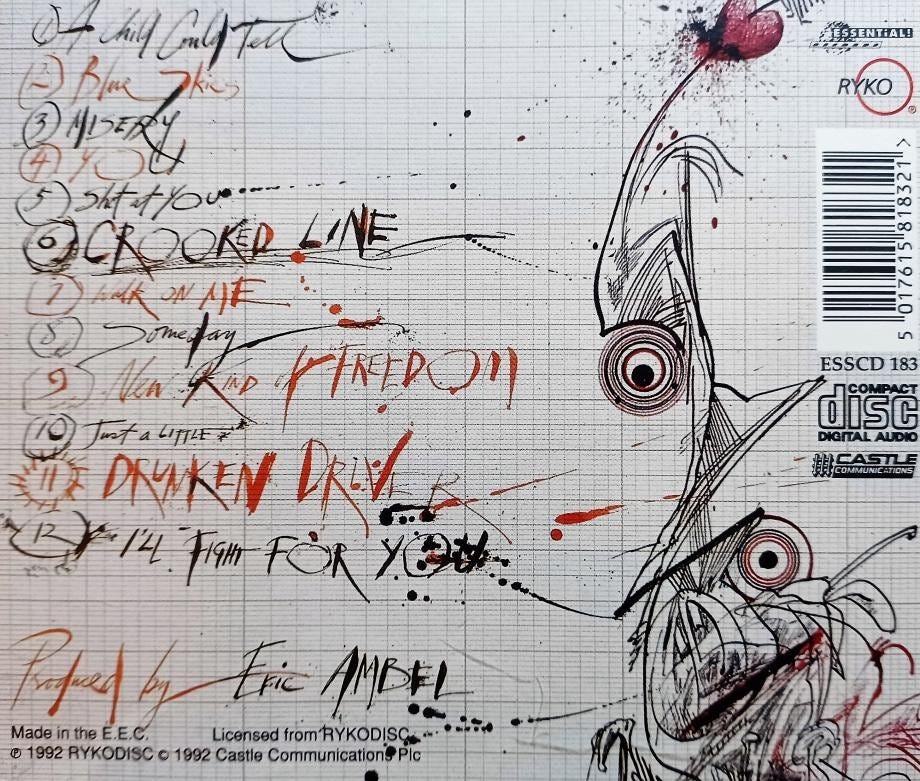 1 A Child Could Tell
2 Blue Skies
3 MISERY
4 YOU
5 Shit at YOU
6 CROOKED LINE
7 WALK ON ME
8 Someday
9 New Kind of FREEDOM
10 Just a LITTLE
11 DRUNKEN DRIVER
12 I'LL FIGHT FOR YOU
Produced by Eric AMBEL
Made in the E.E.C. Licensed from RYKODISC
℗ 1992 RYKODISC © 1992 Castle Communications Plc
ESSENTIAL!
RYKO
5 017615 818321 >
ESSCD 183
COMPACT
disc
DIGITAL AUDIO
CASTLE
COMMUNICATIONS